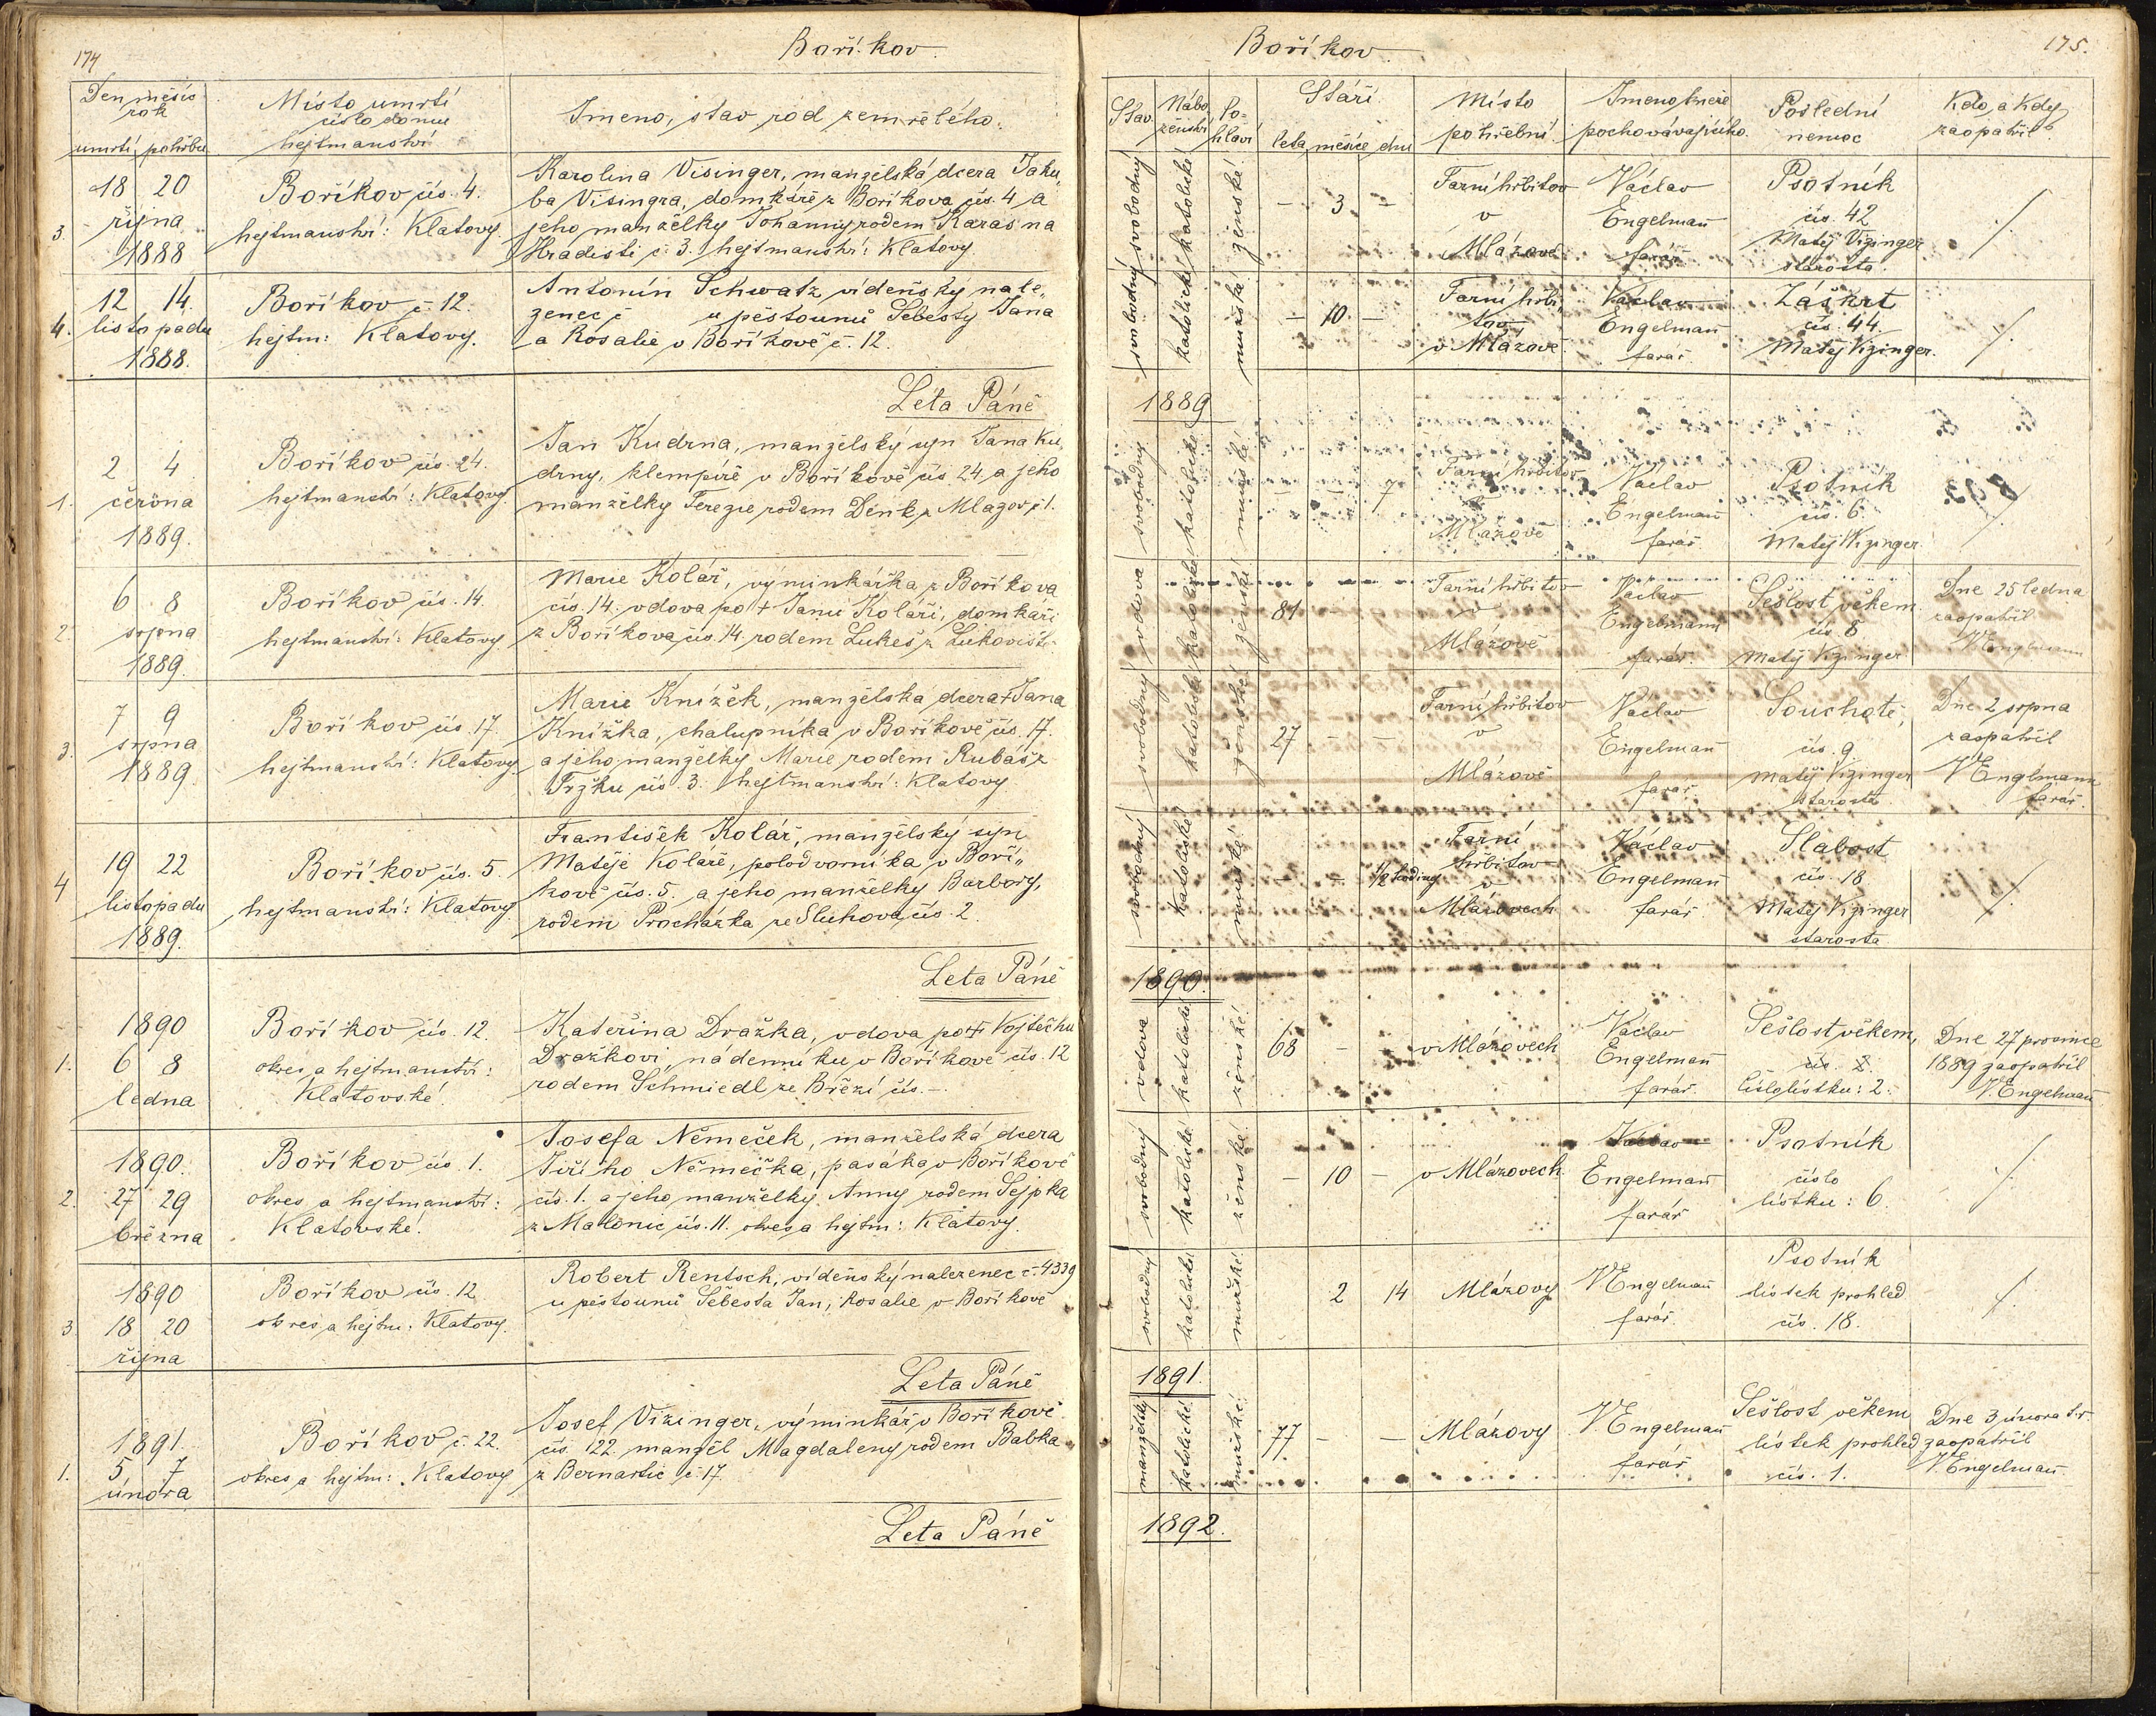 174
Boříkov.
Den měsíc
rok
umrtí pohřbu
Místo umrtí
číslo domu
hejtmanství
Jmeno, stav rod zemřelého.
3.
18 20
října
1888
Boříkov čís. 4.
hejtmanství: Klatovy.
Karolina Visinger, manželská dcera Jaku„
ba Visingra, domkáře z Boříkova čís. 4 a
jeho manželky Johanny rodem Karas na
Hradišti č. 3. hejtmanství: Klatovy.
4.
12 14.
listopadu
1888.
Boříkov č. 12.
hejtm: Klatovy.
Antonín Schwatz, vídeňský nale„
zenec č u pěstounů Šebesty Jana
a Rosalie v Boříkově č. 12.
Léta Páně
1.
2 4
června
1889.
Boříkov čís. 24.
hejtmanství: Klatovy.
Jan Kudrna, manželský syn Jana Ku
drny, klempíře v Boříkově čís. 24, a jeho
manželky Terezie rodem Denk z Mlazov č 1.
2.
6 8
srpna
1889.
Boříkov čís. 14.
hejtmanství: Klatovy.
Marie Kolář, výminkářka z Boříkova
čís. 14. vdova po † Janu Koláři, domkáři
z Boříkova čís. 14. rodem Lukeš z
3.
7 9
srpna
1889.
Boříkov čís. 17.
hejtmanství: Klatovy.
Marie Knížek, manželská dcera † Jana
Knížka, chalupníka v Boříkově čís. 17.
a jeho manželky Marie rodem Rubáš z
Tržku čís. 3. hejtmanství: Klatovy
4
19 22
listopadu
1889.
Boříkov čís. 5.
hejtmanství: Klatovy
František Kolář, manželský syn
Matěje Koláře, polodvorníka v Boří„
kově čís. 5. a jeho manželky Barbory,
rodem Procházka ze Sluhova, čís. 2.
Leta Páně
1.
1890
6 8
ledna
Boříkov čís. 12.
okres a hejtmanství:
Klatovské.
Kateřina Dražka, vdova po † Vojtěchu
Dražkovi, nádenníku v Boříkově čís. 12
rodem Schmiedl ze Březí čís. –.
2.
1890.
27 29
března
Boříkov čís. 1.
okres a hejtmanství:
Klatovské.
Josefa Němeček, manželská dcera
Jiřího Němečka, pasáka v Boříkově
čís. 1. a jeho manželky Anny rodem Sejpka
z Malonic čís. 11. okres a hejtm: Klatovy.
3
1890
18 20
října
Boříkov čís. 12
okres a hejtm: Klatovy.
Robert Rentsch, vídeňský nalezenec č. 4339
u pěstounů Šebesta Jan, Rosalie v Boříkově
Leta Páně
1.
1891.
5 7
února
Boříkov č. 22.
okres a hejtm: Klatovy
Josef Vizinger, výminkář v Boříkově
čís. 122 manžel Magdaleny rodem Babka
z Bernartic č. 17.
Leta Páně
Boříkov.
175.
Stav.
Nábo
ženství
Po=
hlaví
Stáří.
leta měsíce dni
Místo
pohřební
Jmeno kněze
pochovávajícího.
Poslední
nemoc
Kdo, a kdy
zaopatřil
svobodný
katolické
ženské.
– 3 –
Farní hřbitov
v
Mlázově
Václav
Engelmañ
farář
Psotník
čís. 42
Matěj Vizinger
starosta.
./.
svobodný
katolické
mužské
– 10. –
Farní hřbi„
tov
v Mlázově
Václav
Engelmañ
farář.
Záškrt
čís. 44.
Matěj Vizinger.
./.
1889
svobodný
katolické
mužské
– – 7
Farní hřbitov
v
Mlázově
Václav
Engelmañ
farář.
Psotník
čís. 6.
Matěj Vizinger
./.
vdova
katolické
ženské
81 –
Farní hřbitov
v
Mlázově
Václav
Engelmann
farář.
Sešlost věkem
čís. 8
Matěj Vizinger
Dne 25 ledna
zaopatřil
V Englmann
svobodný
katolické
ženské
27 – –
Farní hřbitov
v
Mlázově
Václav
Engelmañ
farář.
Souchotě,
čís. 9
Matěj Vizinger
starosta
Dne 2 srpna
zaopatřil
V Englmann
farář.
svobodný
katolické
mužské
– – 1/2 hodiny
Farní
hřbitov
v
Mlázovech
Václav
Engelmañ
farář
Slabost
čís. 18
Matěj Vizinger
starosta
./.
1890.
vdova
katolické
ženské.
68 –
v Mlázovech
Václav
Engelmañ
farář.
Sešlost věkem,
čís. 2.
Číslo lístku: 2.
Dne 27 prosince
1889 zaopatřil
V. Engelmañ
svobodný
katolické
ženské
– 10 –
v Mlázovech
Václav
Engelmañ
farář
Psotník
číslo
lístku: 6.
./.
svobodný
katolické
mužské.
2 14
Mlázovy
V Engelmañ
farář.
Psotník
lístek prohled
čís. 18.
./.
1891.
manželský
katolické
mužské.
77 – –
Mlázovy
V Engelmañ
farář
Sešlost věkem
lístek prohled
čís. 1.
Dne 3 února t.r.
zaopatřil
V. Engelmañ
1892.